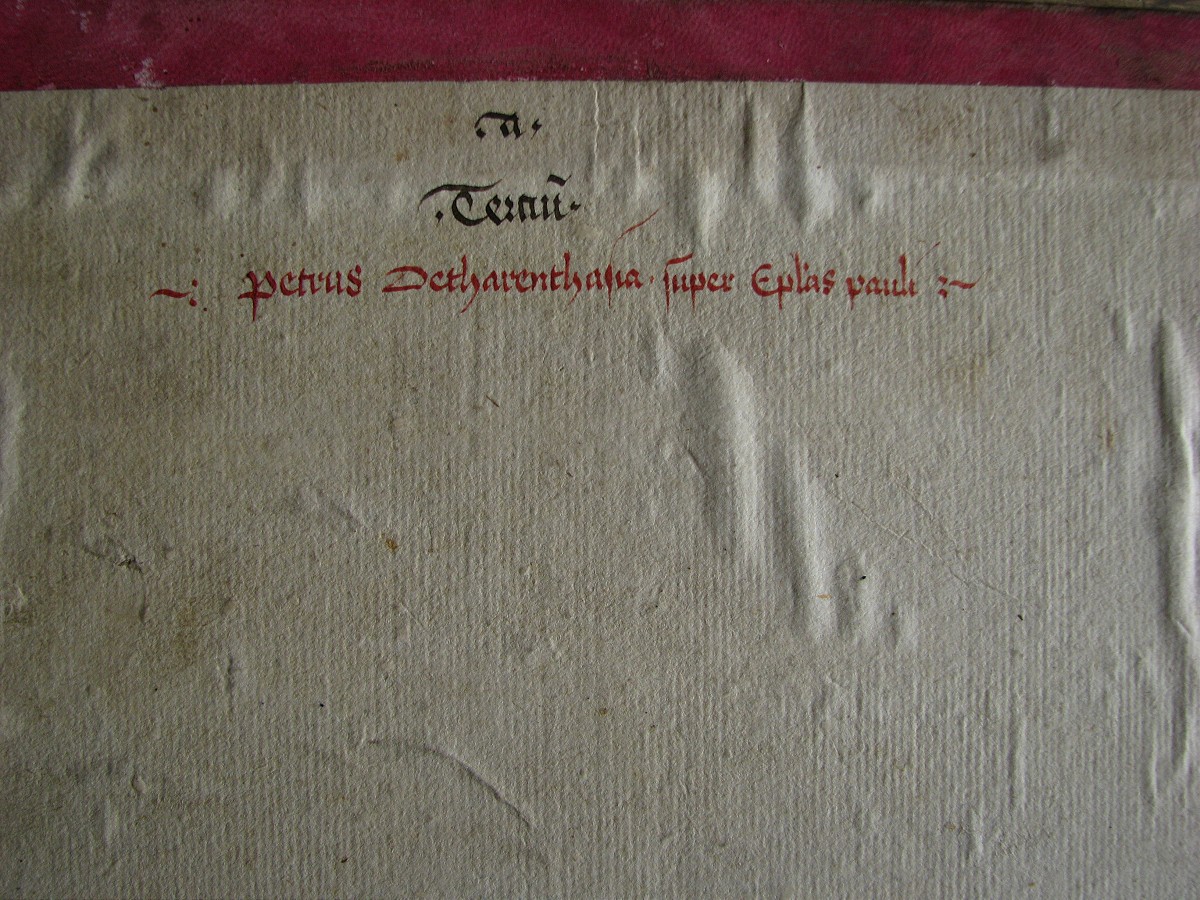 .a.
.Terciū.
~: Petrus Detharenthasia · super Ep̄las pauli :~